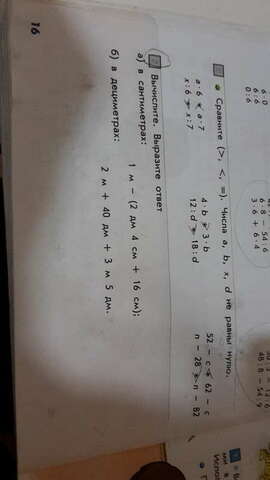 6 : 0
6 : 6
0 : 6
6 · 8 − 54 : 6
3 · 6 + 6 · 4
48 : 8 − 54 : 9
Сравните (>, <, =). Числа a, b, x, d не равны нулю.
a · 6 < a · 7 4 · b > 3 · b 52 − c < 62 − c
x : 6 > x : 7 12 : d > 18 : d n − 28 > n − 82
Вычислите. Выразите ответ
а) в сантиметрах: 1 м − (2 дм 4 см + 16 см);
б) в дециметрах: 2 м + 40 дм + 3 м 5 дм.
16